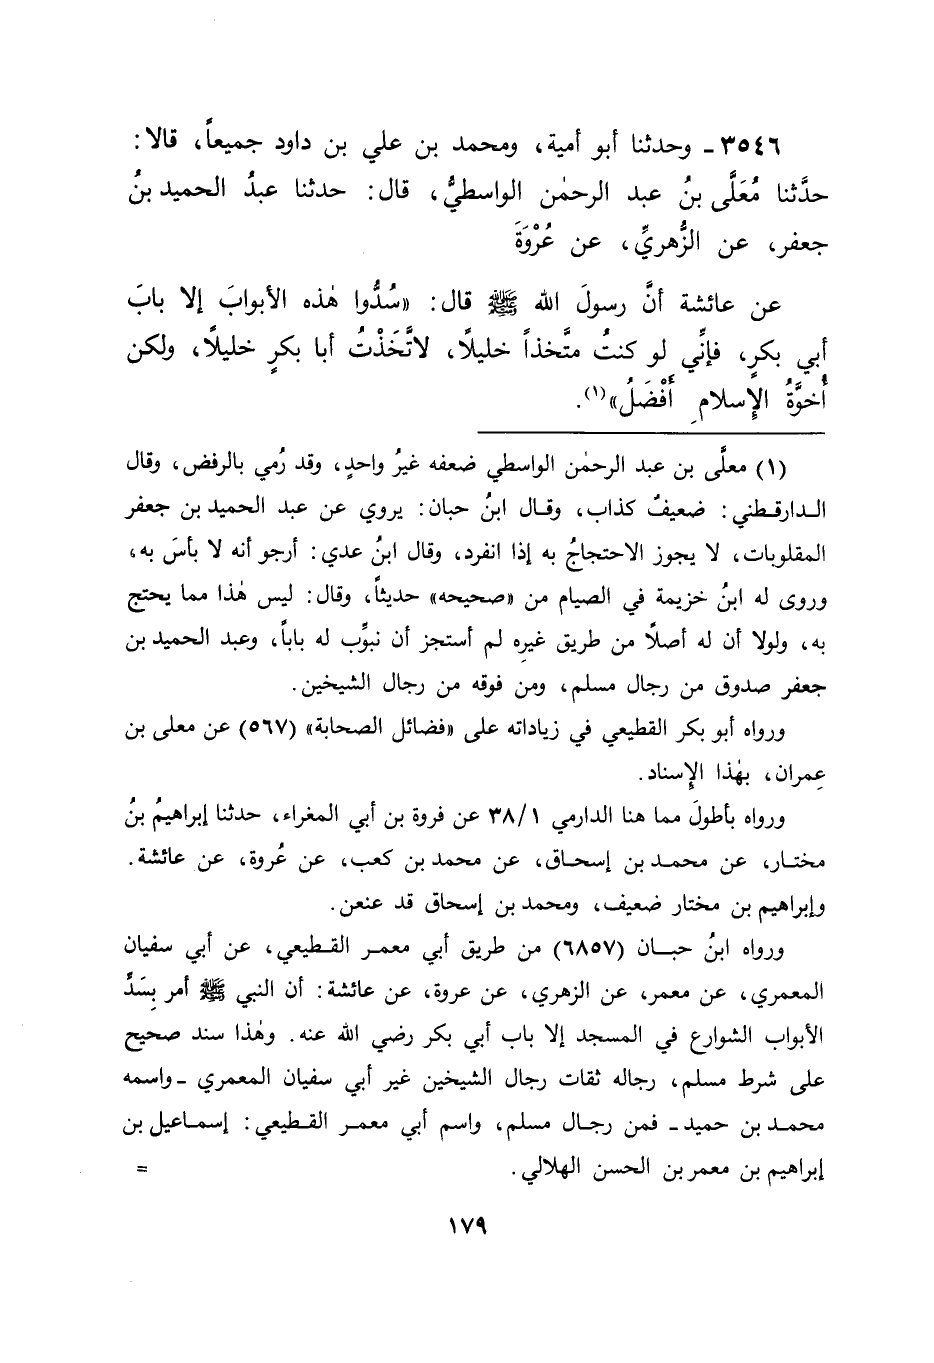 ٣٥٤٦ ـ وحدثنا أبو أمية، ومحمد بن علي بن داود جميعاً، قالا:
حدَّثنا مُعَلَّى بنُ عبد الرحمٰن الواسطيُّ، قال: حدثنا عبدُ الحميد بنُ
جعفر، عن الزُّهريِّ، عن عُرْوَةَ
عن عائشة أنَّ رسولَ الله ﷺ قال: «سُدُّوا هٰذه الأبوابَ إلا بابَ
أبي بكرٍ، فإنِّي لو كنتُ متَّخذاً خليلًا، لاتَّخَذْتُ أبا بكرٍ خليلًا، ولكن
أُخوَّةُ الإِسلامِ أَفْضَلُ»(١).
(١) معلَّى بن عبد الرحمٰن الواسطي ضعفه غيرُ واحدٍ، وقد رُمي بالرفض، وقال
الدارقطني: ضعيفٌ كذاب، وقال ابنُ حبان: يروي عن عبد الحميد بن جعفر
المقلوبات، لا يجوز الاحتجاجُ به إذا انفرد، وقال ابنُ عدي: أرجو أنه لا بأسَ به،
وروى له ابنُ خزيمة في الصيام من «صحيحه» حديثاً، وقال: ليس هٰذا مما يحتج
به، ولولا أن له أصلًا من طريق غيرِه لم أستجز أن نبوِّب له باباً، وعبد الحميد بن
جعفر صدوق من رجال مسلم، ومن فوقه من رجال الشيخين.
ورواه أبو بكر القطيعي في زياداته على «فضائل الصحابة» (٥٦٧) عن معلى بن
عِمران، بهٰذا الإِسناد.
ورواه بأطولَ مما هنا الدارمي ٣٨/١ عن فروة بن أبي المغراء، حدثنا إبراهيمُ بنُ
مختار، عن محمد بن إسحاق، عن محمد بن كعب، عن عُروة، عن عائشة.
وإبراهيم بن مختار ضعيف، ومحمد بن إسحاق قد عنعن.
ورواه ابنُ حبان (٦٨٥٧) من طريق أبي معمر القطيعي، عن أبي سفيان
المعمري، عن معمر، عن الزهري، عن عروة، عن عائشة: أن النبي ﷺ أمر بِسَدِّ
الأبواب الشوارع في المسجد إلا باب أبي بكر رضي الله عنه. وهٰذا سند صحيح
على شرط مسلم، رجاله ثقات رجال الشيخين غير أبي سفيان المعمري ـ واسمه
محمد بن حميد ـ فمن رجال مسلم، واسم أبي معمر القطيعي: إسماعيل بن
إبراهيم بن معمر بن الحسن الهلالي. =
١٧٩